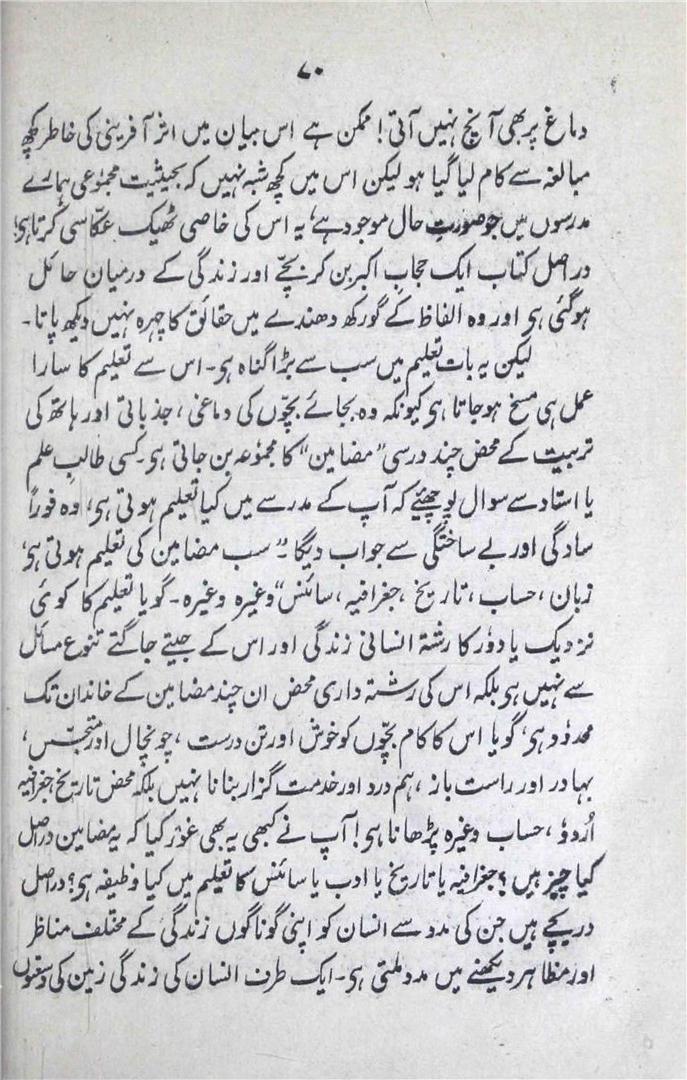 ۷۰
دماغ پر بھی آنچ نہیں آتی! ممکن ہے اس بیان میں اثر آفرینی کی خاطر کچھ
مبالغہ سے کام لیا گیا ہو لیکن اس میں کچھ شبہ نہیں کہ بحیثیت مجموعی ہمارے
مدرسوں میں جو صورتِ حال موجود ہے، یہ اس کی خاصی ٹھیک عکاسی کرتا ہی!
دراصل کتاب ایک حجاب اکبر بن کر بچّے اور زندگی کے درمیان حائل
ہوگئی ہی اور وہ الفاظ کے گورکھ دھندے میں حقائق کا چہرہ نہیں دیکھ پاتا۔
لیکن یہ بات تعلیم میں سب سے بڑا گناہ ہی۔ اس سے تعلیم کا سارا
عمل ہی مسخ ہوجاتا ہی کیونکہ وہ بجائے بچّوں کی دماغی، جذباتی اور ہاتھ کی
تربیت کے محض چند درسی "مضامین" کا مجموعہ بن جاتی ہی۔ کسی طالبِ علم
یا استاد سے سوال پوچھئے کہ آپ کے مدرسے میں کیا تعلیم ہوتی ہی، وہ فوراً
سادگی اور بے ساختگی سے جواب دیگا۔ "سب مضامین کی تعلیم ہوتی ہی،
زبان، حساب، تاریخ، جغرافیہ، سائنس" وغیرہ وغیرہ۔ گویا تعلیم کا کوئی
نزدیک یا دوٗر کا رشتہ انسانی زندگی اور اس کے جیتے جاگتے تنوع مسائل
سے نہیں ہی بلکہ اس کی رشتہ داری محض ان چند مضامین کے خاندان تک
محدوٗد ہی، گویا اس کا کام بچّوں کو خوش اور تن درست، چونچال اور متجسّس،
بہادر اور راست باز، ہم درد اور خدمت گزار بنانا نہیں بلکہ محض تاریخ جغرافیہ
اُردوٗ، حساب وغیرہ پڑھانا ہی! آپ نے کبھی یہ بھی غوٗر کیا کہ یہ مضامین دراصل
کیا چیز ہیں؟ جغرافیہ یا تاریخ یا ادب یا سائنس کا تعلیم میں کیا وظیفہ ہی؟ دراصل
دریچے ہیں جن کی مدد سے انسان کو اپنی گوناگوں زندگی کے مختلف مناظر
اور مظاہر دیکھنے میں مدد ملتی ہی۔ ایک طرف انسان کی زندگی زمین کی وسعتوں